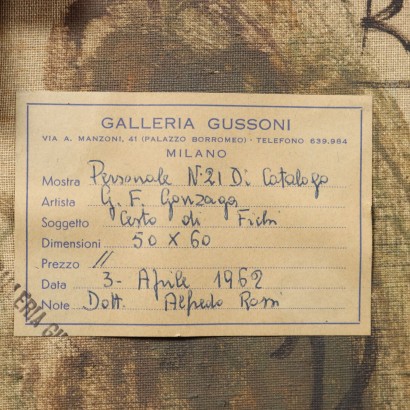 R
GALLERIA GUSSONI
VIA A. MANZONI, 41 (PALAZZO BORROMEO) - TELEFONO 639.984
MILANO
Mostra Personale N. 21 Di Catalogo
Artista G. F. Gonzaga
Soggetto Cesto di Fichi
Dimensioni 50 X 60
Prezzo //
Data 3 - Aprile 1962
Note Dott. Alfredo Rossi